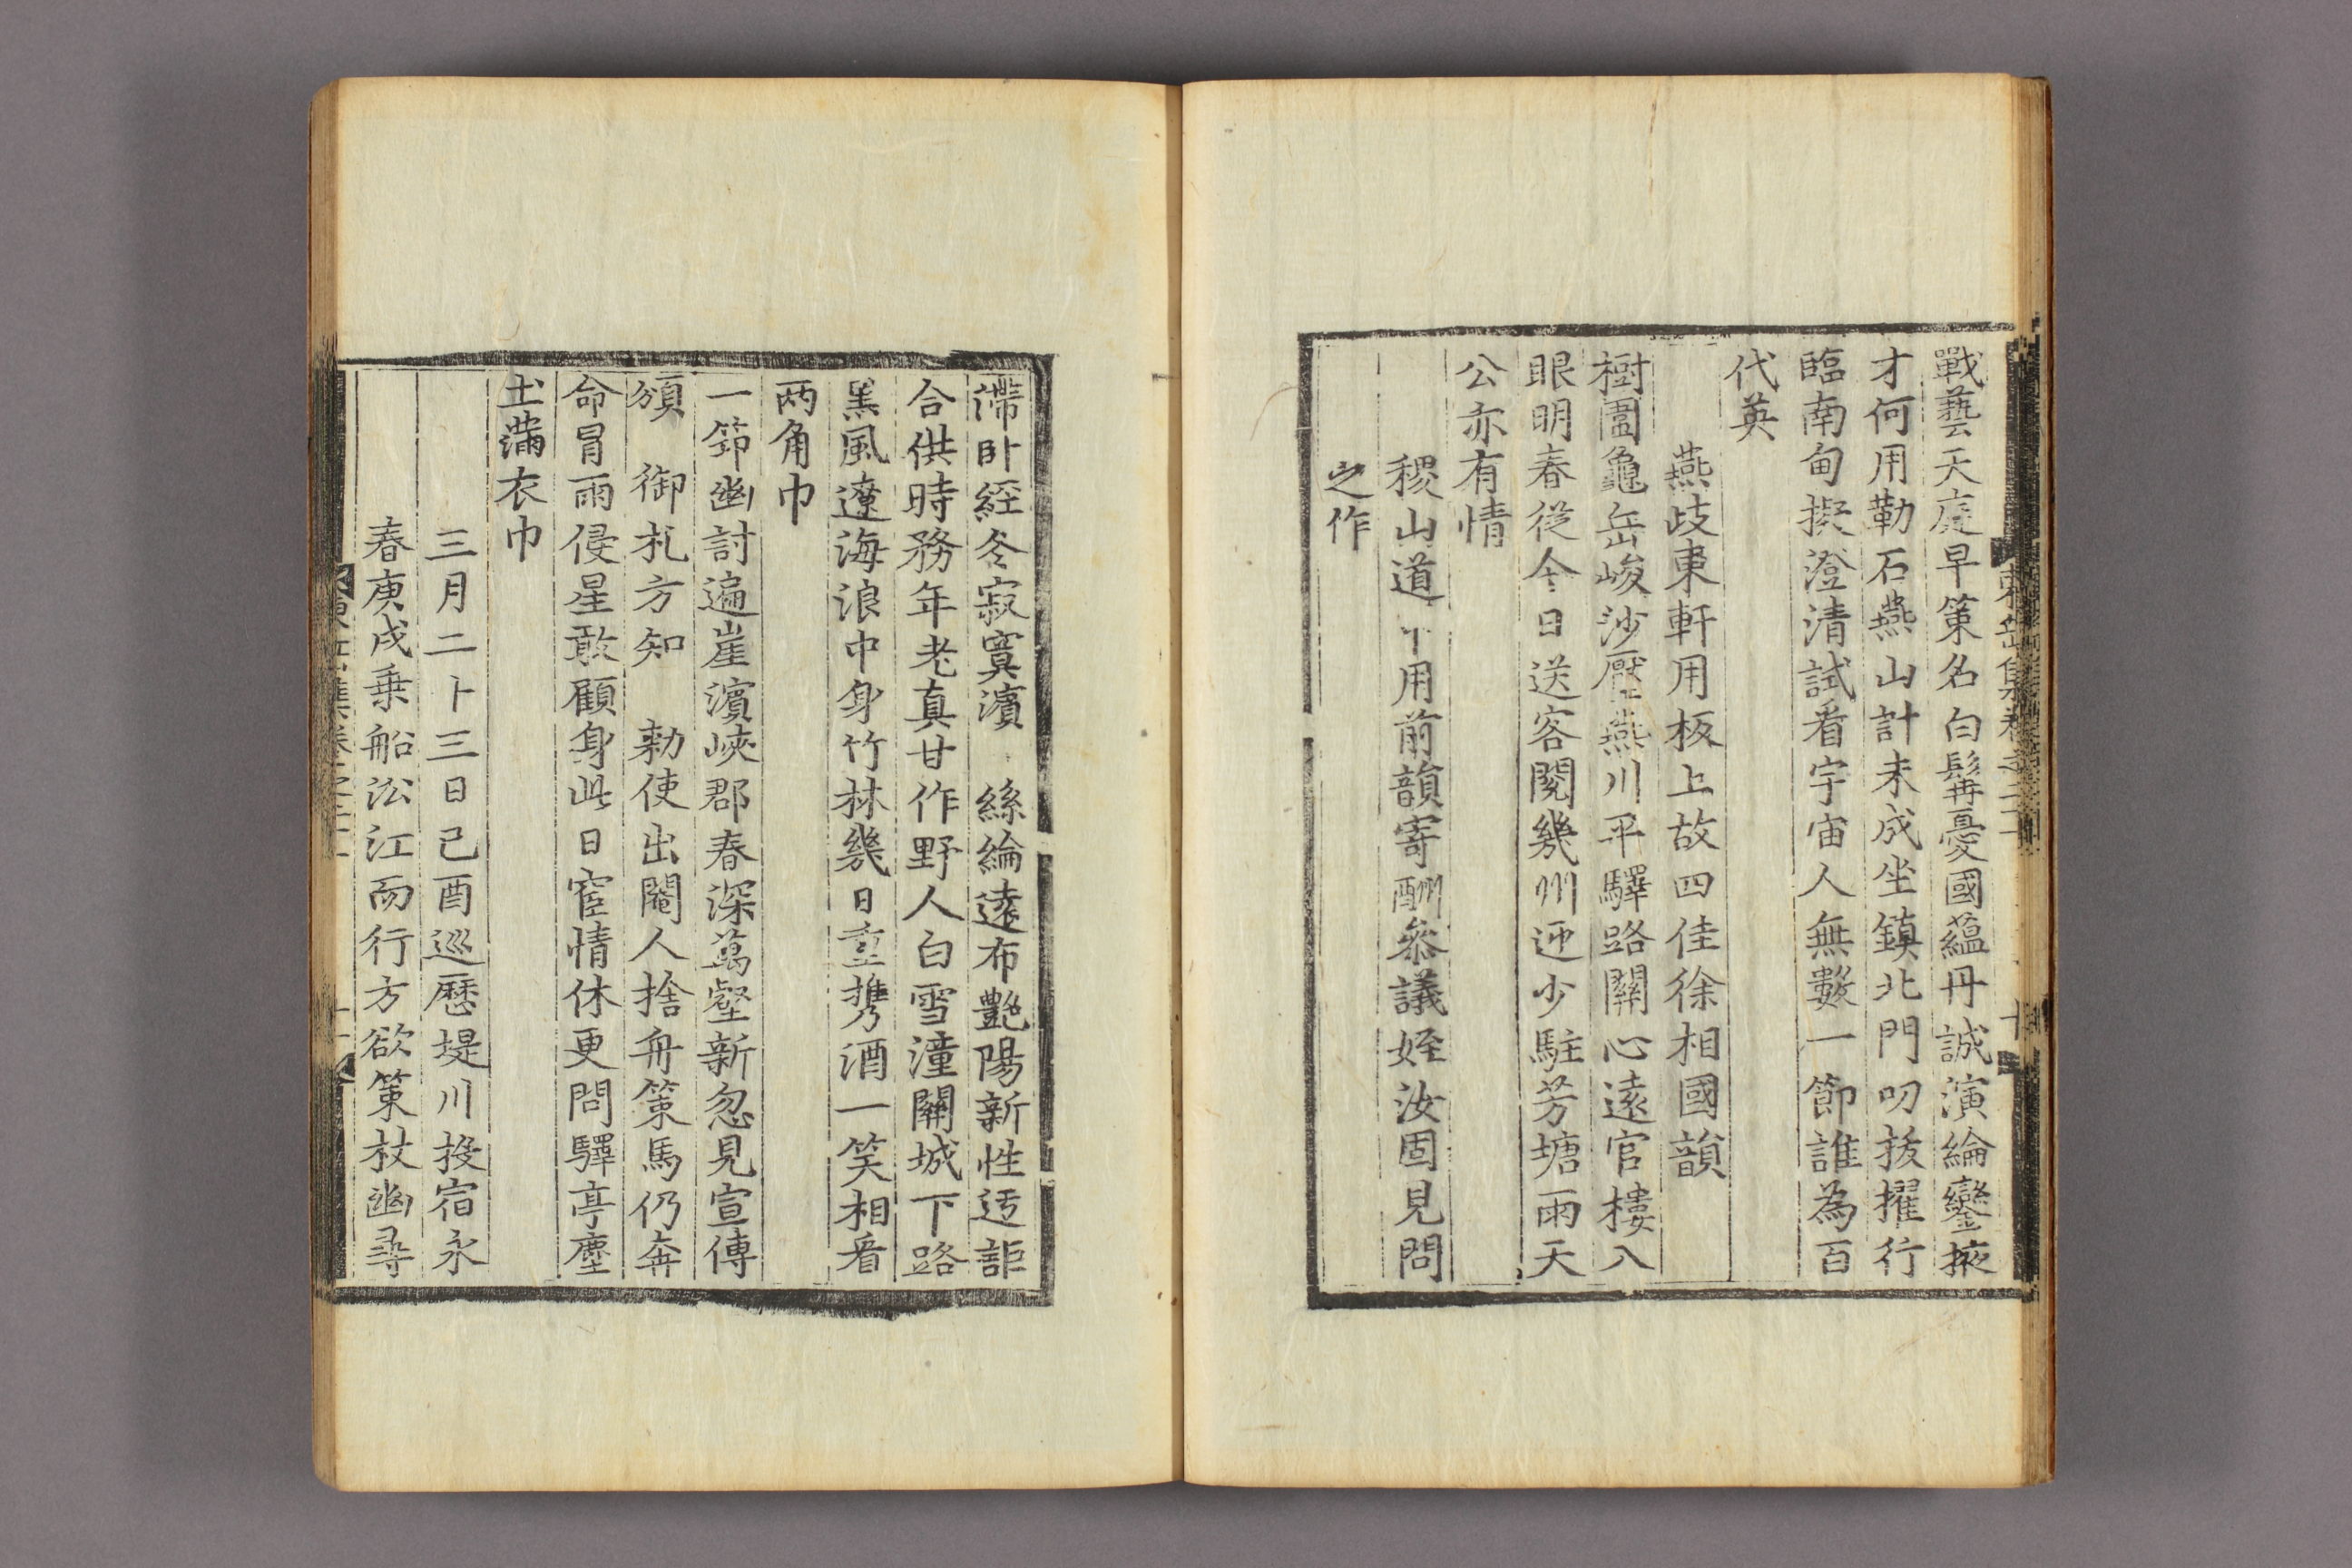 東岳集卷之二 十
戰藝天庭早策名白髯憂國蘊丹誠演綸鑾掖
才何用勒石燕山計未成坐鎮北門叨拔擢行
臨南甸擬澄清試看宇宙人無數一節誰為百
代英
燕歧東軒用板上故四佳徐相國韻
樹圍龜岳峻沙壓燕川平驛路關心遠官樓入
眼明春從今日送客閱幾州迎少駐芳塘雨天
公亦有情
稷山道中用前韻寄酬參議姪汝固見問
之作
滯卧經冬寂寞濱 絲綸遠布艶陽新性迃詎
合供時務年老真甘作野人白雪潼關城下路
黑風遼海浪中身竹林幾日重携酒一笑相看
两角巾
一節幽討遍崖濱峽郡春深萬壑新忽見宣傳
頒 御札方知 勑使出閹人捨舟策馬仍奔
命冒雨侵星敢顧身此日宦情休更問驛亭塵
土滿衣巾
三月二十三日己酉巡歷堤川投宿永
春庚戌乗船㳂江而行方欲策杖幽尋